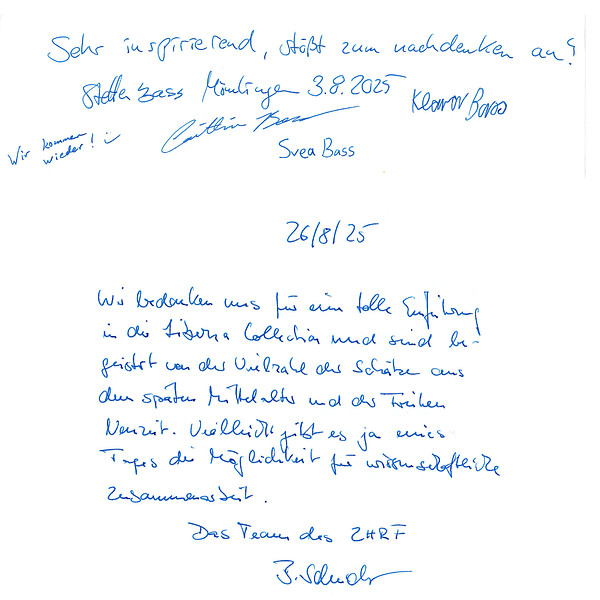 Sehr inspirierend, stößt zum nachdenken an!
Steffen Bass Möntingen 3.8.2025
Eleanor Bass
Wir kommen
wieder!
Caitlin Bass
Svea Bass
26/8/25
Wir bedanken uns für eine tolle Einführung
in die Liberna Collection und sind be-
geistert von der Vielzahl der Schätze aus
dem späten Mittelalter und der Frühen
Neuzeit. Vielleicht gibt es ja eines
Tages die Möglichkeit für wissenschaftliche
Zusammenarbeit.
Das Team des ZHRF